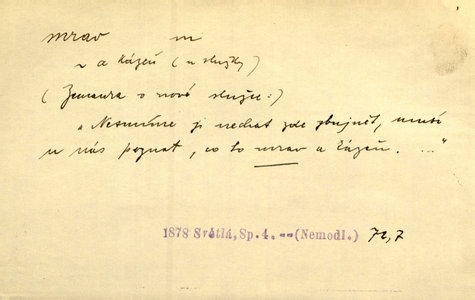 mrav m
~ a kázeň (u služky)
(Zemanka o nové služce:)
„Nesmíme ji nechat zde zbujnět, musí
u nás poznat, co to mrav a kázeň. ..."
1878 Světlá, Sp. 4. -- (Nemodl.) 72,7